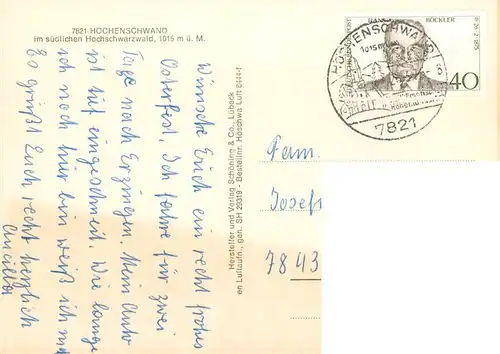 7821 HOCHENSCHWAND
im südlichen Hochschwarzwald, 1015 m ü. M.
Wünsche Euch ein recht frohes
Osterfest. Ich fahre für zwei
Tage nach Erzingen. Mein Auto
ist tief eingeschneit. Wie lange
ich noch hier bin weiß ich nicht
Es grüßt Euch recht herzlich
Hersteller und Verlag Schöning & Co., Lübeck
en Luftaufn., gen. SH 29319 - Bestellnr. Höschwa Luft 8444-1
BÖCKLER
40
HÖCHENSCHWAND
1015 m
7821
Fam.
Josef
7843